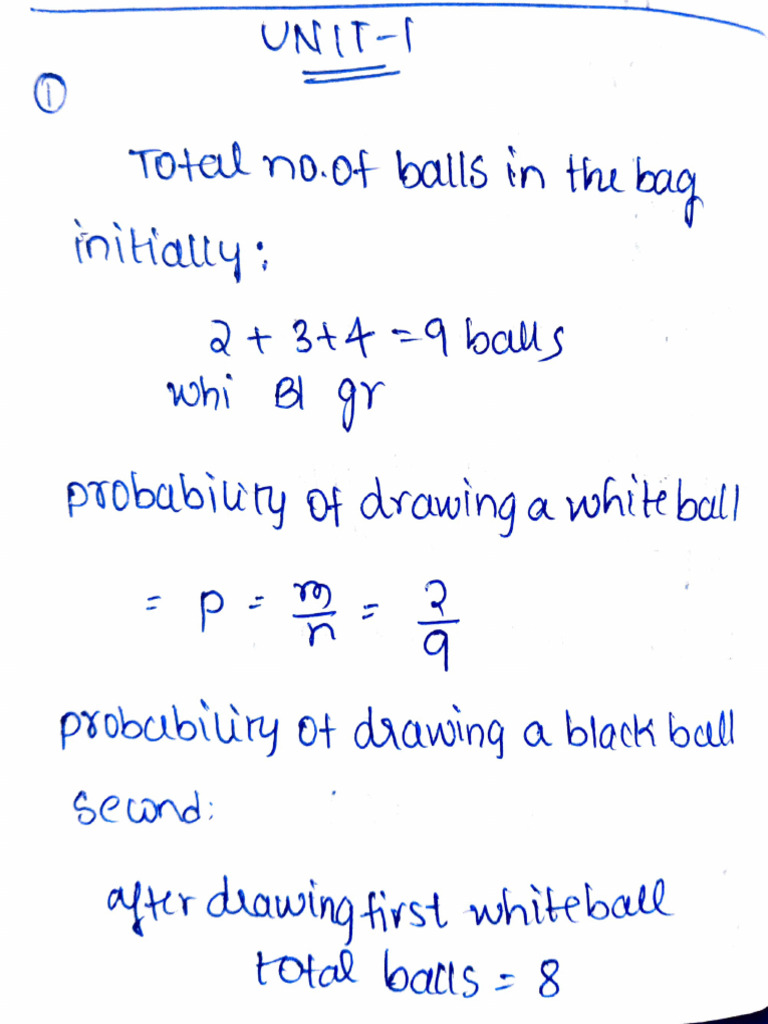 UNIT-1
①
Total no.of balls in the bag
initially:
2 + 3+4 = 9 balls
whi Bl gr
probability of drawing a white ball
= p = m/n = 2/9
probability of drawing a black ball
second:
after drawing first white ball
total balls = 8